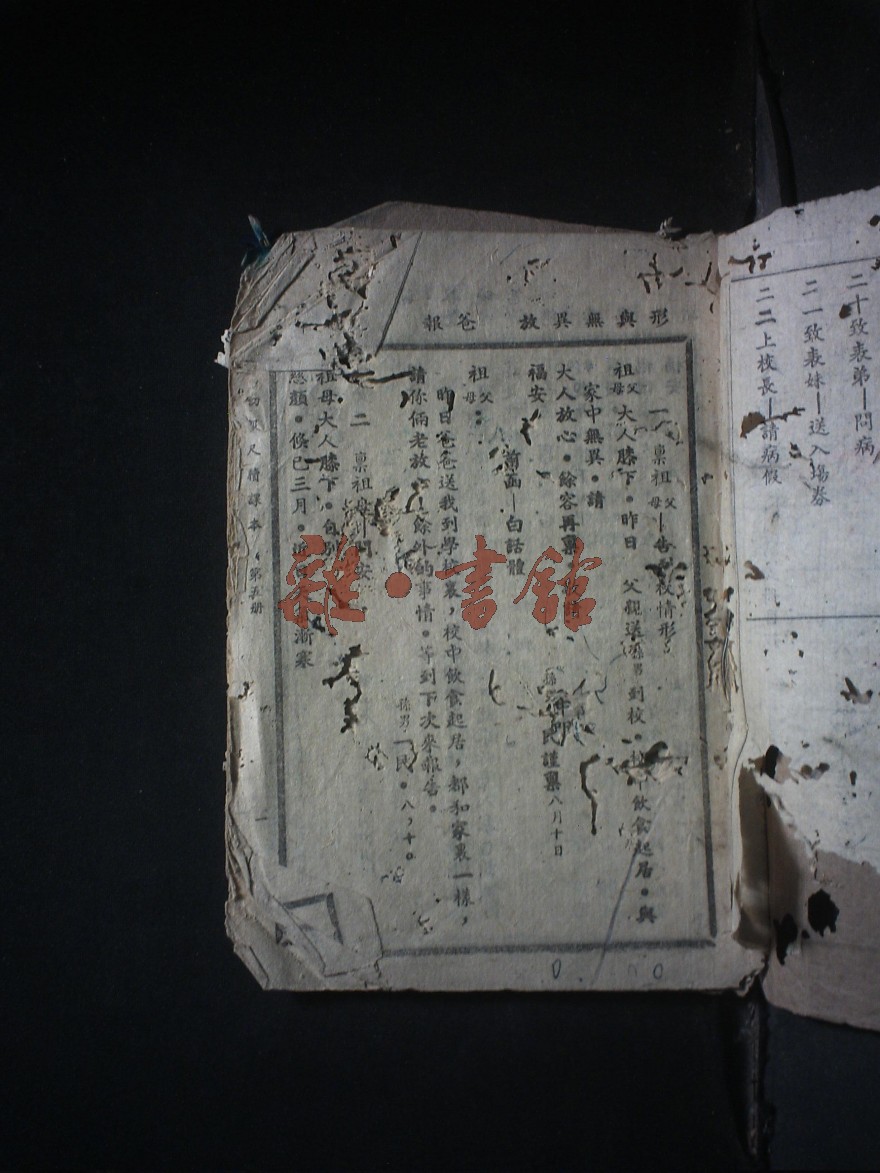 二十致表弟—問病
二一致表妹—送入場券
二二上校長—請病假
形與無異放爸報
一 禀祖父母—告到校情形
祖父母大人膝下。昨日 父親送孫男到校。校中飲食起居。與
家中無異。請
大人放心。餘容再禀 敬請
福安
孫 民謹禀八月十日
前函—白話體
祖父母：
昨日爸爸送我到學校裏，校中飲食起居，都和家裏一樣，
請你倆老放心 餘外的事情。等到下次來報告。
孫男 民。八，十。
二 禀祖母—問安
祖母大人膝下。自別
慈顏。倏已三月。近 漸寒
尺牘課本 第五册
一
雜·書館